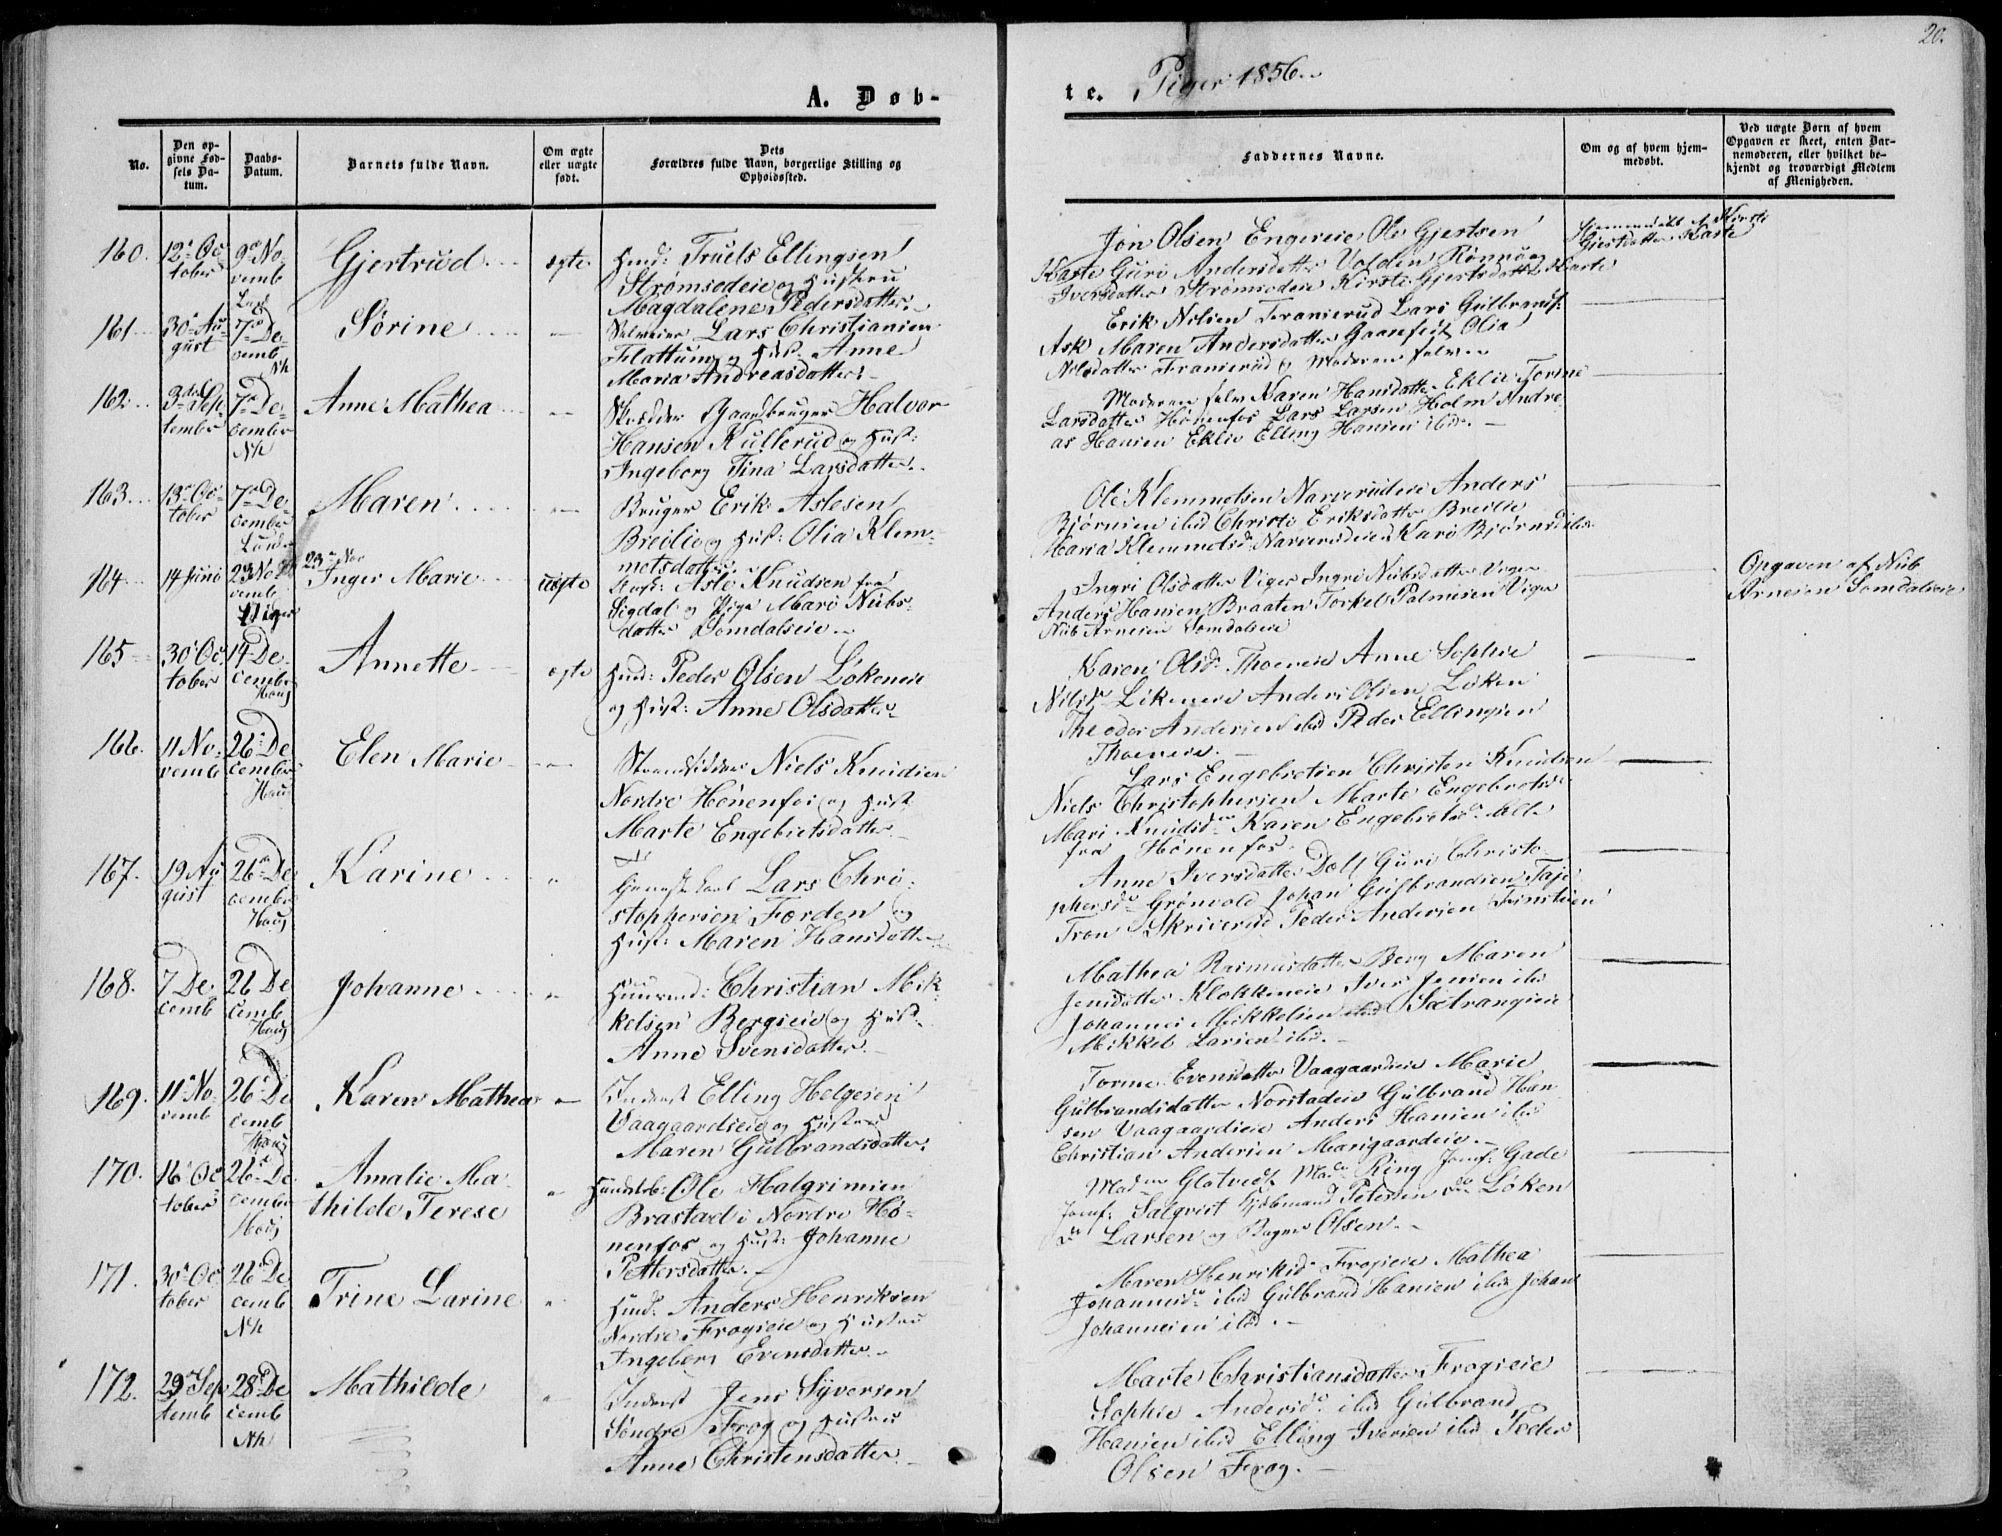 20.
A. Døb-
te. Piger 1856.
No.
Den op-
givne Fød-
sels Da-
tum.
Daabs-
Datum.
Barnets fulde Navn.
Om ægte
eller uægte
født.
Dets
Forældres fulde Navn, borgerlige Stilling og
Opholdssted.
Faddernes Navne.
Om og af hvem hjem-
medøbt.
Ved uægte Børn af hvem
Opgaven er skeet, enten Bar-
nemoderen, eller hvilket be-
kjendt og troværdigt Medlem
af Menigheden.
160. 12 Oc
tober
9 No
vemb
Gjertrud
ægte
Huusmd: Truels Ellingsen
Strømsodeie og Hustru
Magdalene Pedersdatter.
Jon Olsen Engereie Ole Gjertsen
Karte Guri Andersdatter Volden Rønnaug
Iversdatter Strømsodeie Kirsti Gjertsdatter Karte
Hjemmedøbt af Kirsti
Gjertsdatter Karte
161. 30 Au-
gust
7 De-
cemb
Nh
Sørine
Lars Christiansen
Flattum og Hust: Anne
Maria Andreasdatter.
Erik Nilsen Franserud Lars Gulbrands:
Ask Maren Andersdatter Olia
Nilsdatter Franserud og Moderen selv
162. 3 Sep
tember
7 De-
cember
Nh
Anne Mathea
Skrædder Gaardbruger Halvor
Hansen Kullerud og Hust:
Ingeborg Tina Larsdatter.
Moderen selv Karen Hansdatter Eklie Torine
Larsdatter Hønefos Lars Larsen Holm Andre
as Hansen Eklie Elling Hansen ibid.
163. 13 Oc
tober
7 De
cember
Lunder
Maren
Bruger Erik Aslesen
Breilie og Hust: Olia Klem-
metsdatter
Ole Klemmetsen Narverudeie Anders
Bjørnsen ibid Christi Eriksdatter Breilie
Maria Klemmetsd Narverudeie Kari Bjørnsd ibid
164. 14 Juni
23 No
vemb
Viger
23 Nov
Inger Marie
uægte
Asle Knudsen fra
Sigdal og Pige Mari Nubs-
datter Somdalseie
Ingri Olsdatter Viger Ingri Nubsdatter Viger
Anders Hansen Braaten Torkel Palmesen Viger
Nub Arnesen Somdalseie
Opgaven af Nub
Arnesen Somdalseie
165 30 Oc
tober
14 De-
cember
Haug
Annette
ægte
Huusmd: Peder Olsen Løkeneie
og Hust: Anne Olsdatter
Karen Olsd Thoeneie Anne Sophie
Nilsd Løkeneie Anders Olsen Løken
Theodor Andersen ibid Peder Ellingsen
Thoeneie.
166. 11 No-
vemb
26 De
cember
Haug
Elen Marie
Strandsidder Niels Knudsen
Nordre Hønenfos og Hust
Marte Engebretsdatter
Lars Engebretsen Christen Knudsen
Niels Christophersen Marte Engebretsd
Mari Knudsd Karen Engebretsd alle
fra Hønenfos.
167. 19 Au
gust
26 De
cember
Haug
Karine
Lars Chri-
stophersen Forden og
Hust: Maren Hansdatter
Anne Iversdatter Dæli Guri Christo-
phersd Grønvold Johan Gulbrandsen
Tron Skriverud Peder Andersen
168. 7 De
cemb
26 De
cemb
Haug
Johanne
Huusmd: Christian Mik-
kelsen Bergseie og Hust
Anne Svensdatter.
Mathea Rasmusdatter Berg Maren
Jensdatter Klokkeneie Iver Jensen ibid
Johannes Mikkelsen Sætrangseie
Mikkel Larsen ibid.
169. 11 No-
vemb
26 De
cemb
Haug
Karen Mathea
Inderst Elling Helgesen
Vaagaardseie og Hustru
Maren Gulbrandsdatter.
Torine Evensdatter Vaagaardseie Marie
Gulbrandsdatter Norstadeie Gulbrand Han-
sen Vaagaardseie Anders Hansen ibid
Christian Andersen Mosigaardeie.
170. 16 Oc
tober
26 De
cember
Haug
Amalie Ma-
thilde Terese
Handelsb: Ole Halgrimsen
Brastad i Nordre Hø-
nenfos og Hust: Johanne
Pettersdatter.
Madm Glatved Mad Ring Jomf: Gade
Jomf: Salqvist Kjøbmand Petersen do Løken
do Larsen og Bager Olsen.
171. 30 Oc
tober
26 De
cemb
Nh
Trine Larine
Huusmd: Anders Henriksen
Nordre Frogseie og Hustru
Ingeborg Evensdatter
Maren Henriksd Frogseie Mathea
Johannesd ibid Gulbrand Hansen ibid Johan
Johannesen ibid.
172. 29 Sep
temb
28 De
cemb
Nh
Mathilde
Inderst Jens Syversen
Søndre Frog og Hustru
Anne Christensdatter
Marte Christiansdatter Frogseie
Sophie Andersd ibid Gulbrand
Hansen ibid Elling Iversen ibid Peder
Olsen Frog.